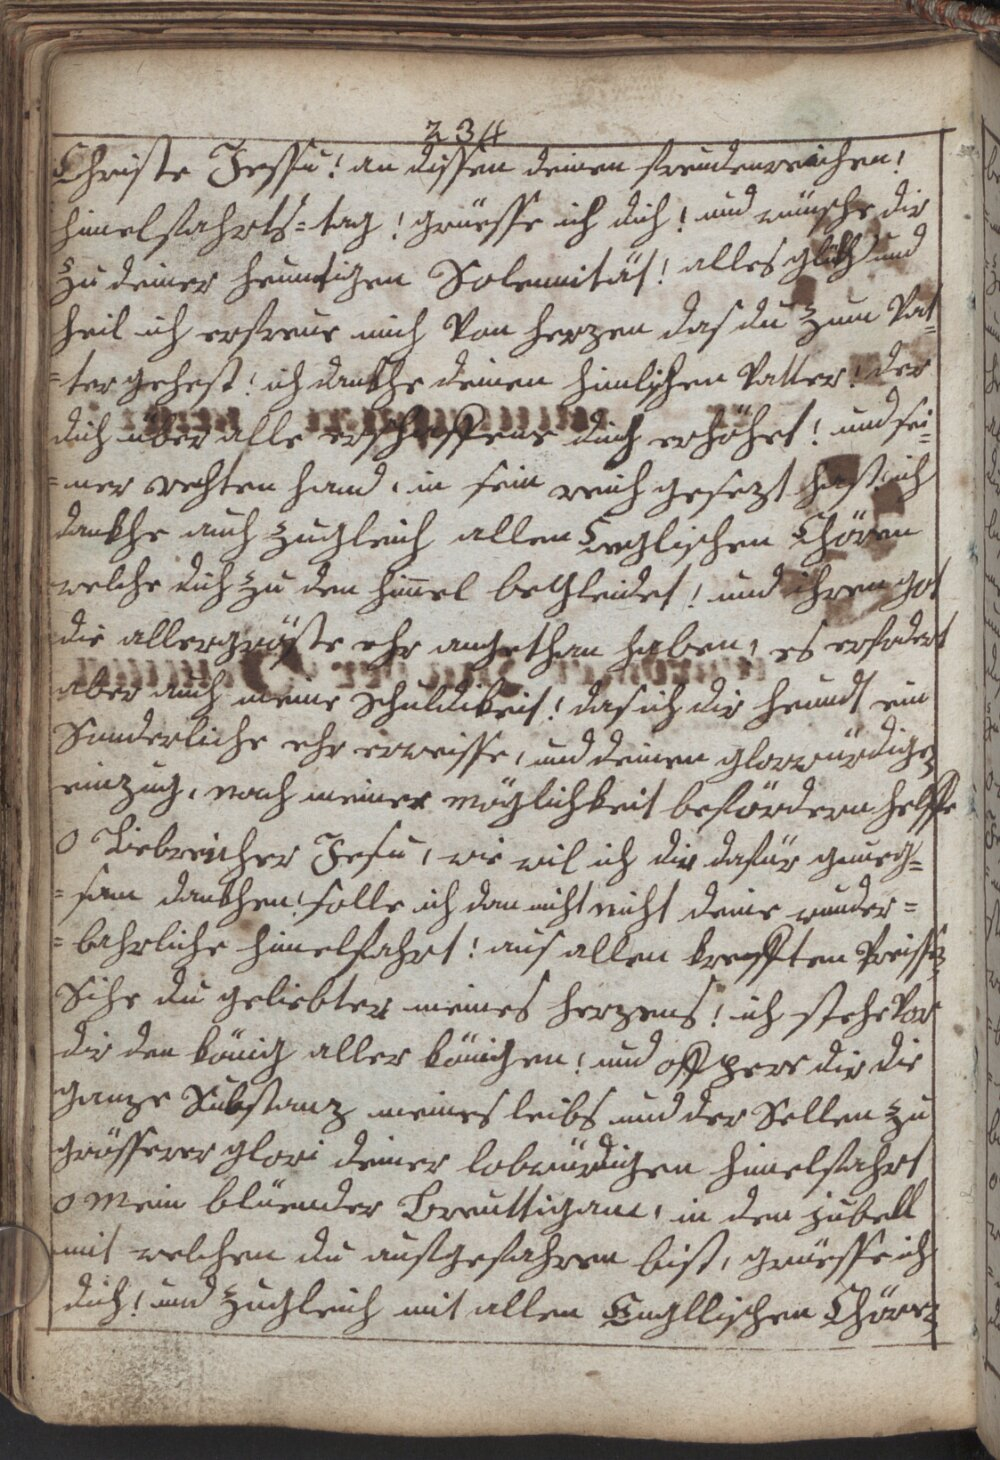 234
Christe Jessu! an dissen deinen freudenreichen!
himelfahrts=tag! grüesse ich dich! und wünsche dir
zu deiner heuntigen Solennität! alles glükh und
heil ich erfreue mich Von herzen das du zum Vat=
=ter gehest! ich dankhe deinen himlischen Vatter! der
dich über alle erschaffene ding erhöhet! und sei=
=ner rechten hand, in sein reich gesezt hast, ich
dankhe auch zugleich allen Englischen Chören
welche dich zu den himel begleidet! und ihren got
die allergröste ehr angethan haben, es erfodert
aber auch meine schuldikeit! das ich dir heundt ein
Sonderliche ehr erweisse, und deinen glorwürdigen
einzug, nach meiner möglichkeit befördern helffe
O Liebreicher Jesu, wie wil ich dir dafür gnueg=
=sam dankhen! solle ich dan nicht nicht deine wunder=
=bahrliche himelfahrt! aus allen krefften Preissen
Sihe du geliebter meines herzens! ich stehe Vor
dir den könig aller königen! und offpere dir die
ganze Substanz meines leibs und der Sellen zu
grösserer glori deiner lobwürdigen himelfahrt
O Mein blüender Breuttigam, in den jubell
mit welchen du aufgefahren bist, grüesse ich
dich! und zugleich mit allen Engllischen Chören